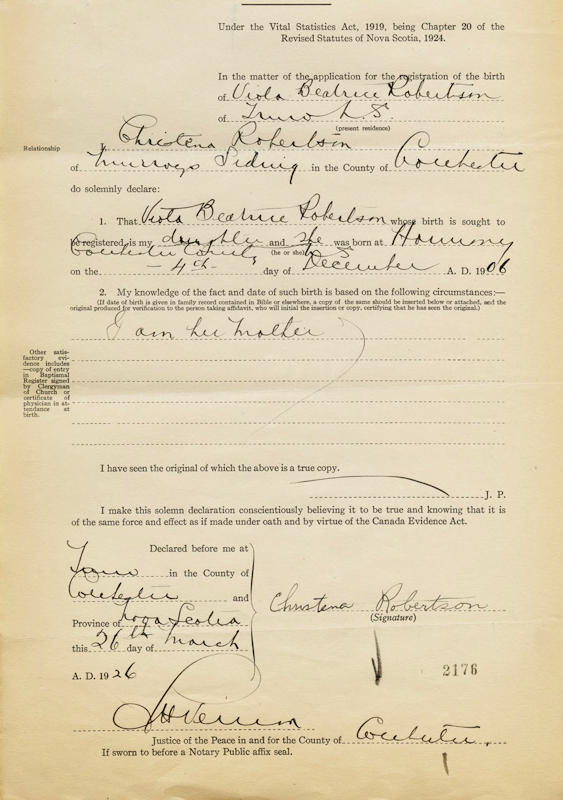 Under the Vital Statistics Act, 1919, being Chapter 20 of the
Revised Statutes of Nova Scotia, 1924.
In the matter of the application for the registration of the birth
of Viola Beatrice Robertson
of Truro N. S.
(present residence)
Relationship
I, Christena Robertson
of Murrays Siding in the County of Colchester
do solemnly declare:
1. That Viola Beatrice Robertson whose birth is sought to
be registered, is my daughter and she was born at Harmony
Colchester County (he or she) N S
on the 4th day of December A. D. 1906
2. My knowledge of the fact and date of such birth is based on the following circumstances:—
(If date of birth is given in family record contained in Bible or elsewhere, a copy of the same should be inserted below or attached, and the
original produced for verification to the person taking affidavit, who will initial the insertion or copy, certifying that he has seen the original.)
I am her mother
Other satis-
factory evi-
dence includes
—copy of entry
in Baptismal
Register signed
by Clergyman
of Church or
certificate of
physician in at-
tendance at
birth.
I have seen the original of which the above is a true copy.
J. P.
I make this solemn declaration conscientiously believing it to be true and knowing that it is
of the same force and effect as if made under oath and by virtue of the Canada Evidence Act.
Declared before me at
Truro in the County of
Colchester and
Province of Nova Scotia
this 26th day of March
A. D. 1926
Christena Robertson
(Signature)
2176
Vernon
Justice of the Peace in and for the County of Colchester.
If sworn to before a Notary Public affix seal.